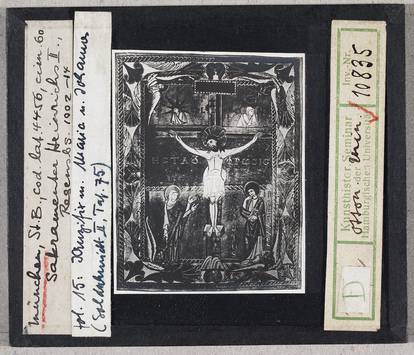 München, St.B, Cod. lat. 4456, cim. 60
Sakramentar Heinrichs II.,
Regensbg. 1002-14
fol. 15: Kruzifix m. Maria u. Johannes
(Goldschmidt II, Taf. 75)
Kunsthistor. Seminar
der
Hamburgischen Universität
Inv.-Nr.
10835
otton. min.
D